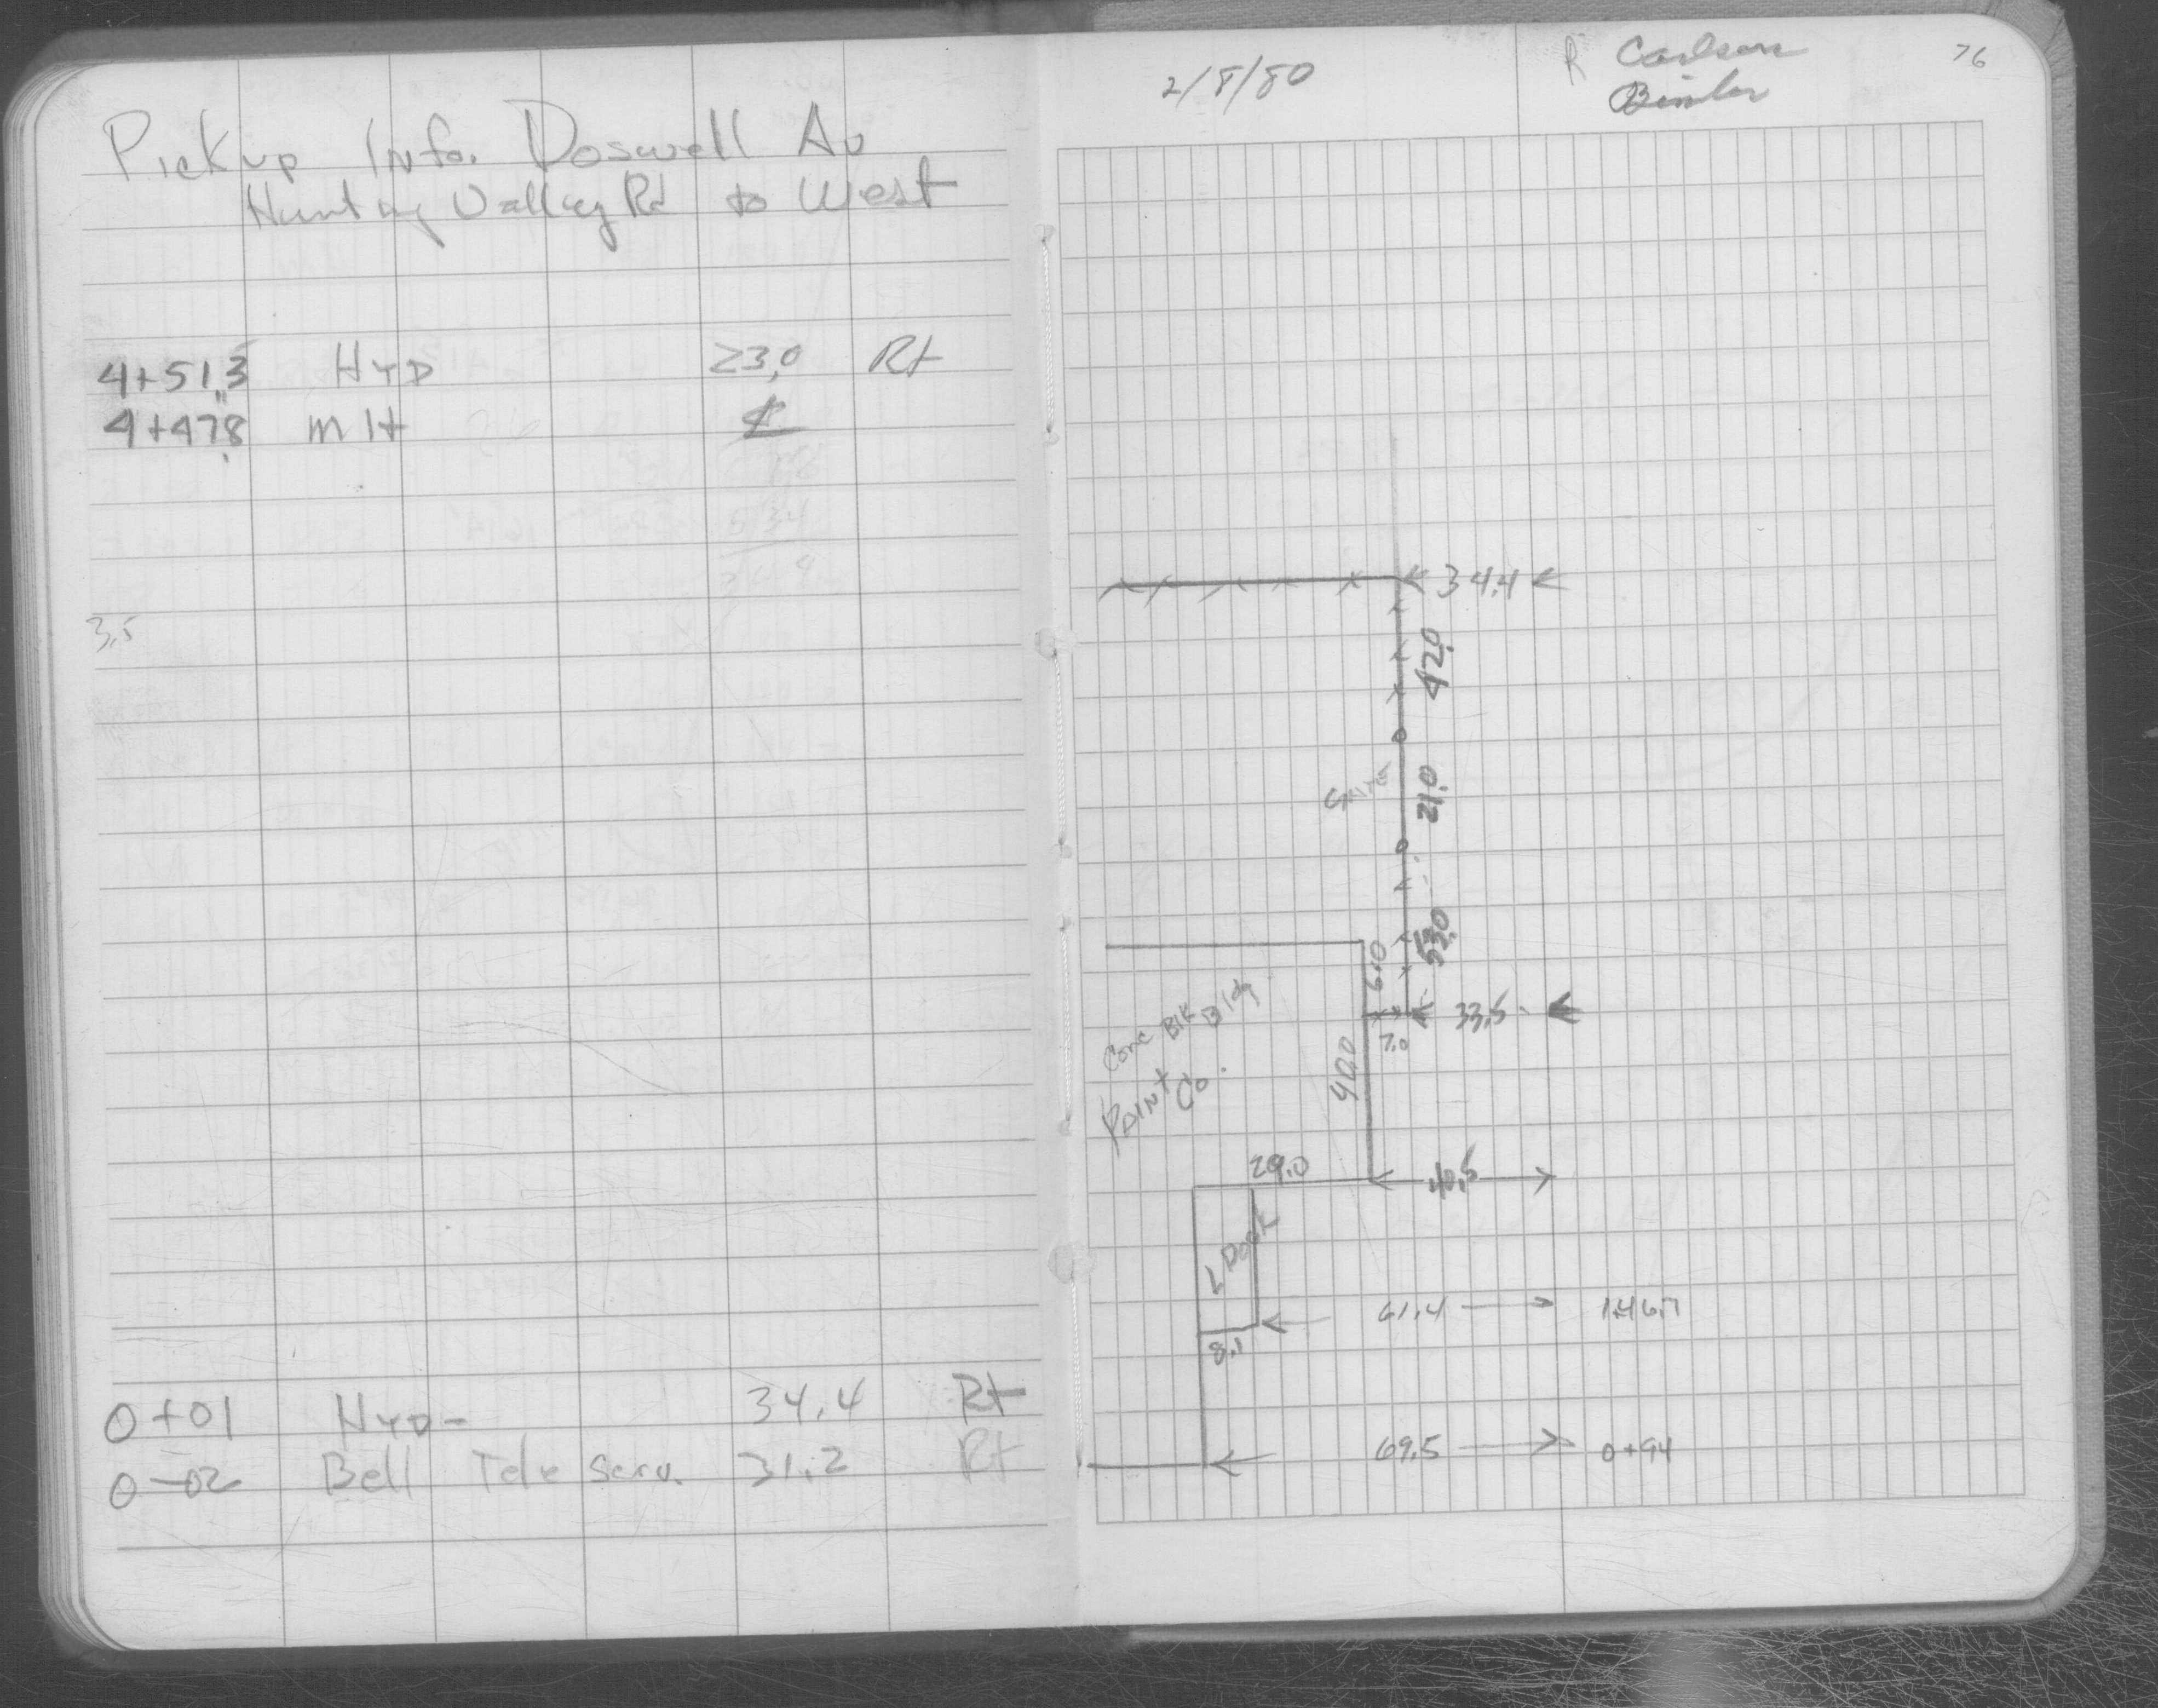 Pick up Info. Doswell Av
Hunting Valley Rd to West
4+51.3 HYD 23.0 Rt
4+47.8 MH ℄
534
3.5
0+01 HYD- 34.4 Rt
0-02 Bell Tele Serv. 31.2 Rt
2/8/80
R Carlson
76
34.4
42.0
21.0
53.0
6.0
33.5
7.0
Conc Blk Bldg
Paint Co.
40.0
29.0
40.5
L Dock
61.4 1+46.7
8.1
69.5 0+94